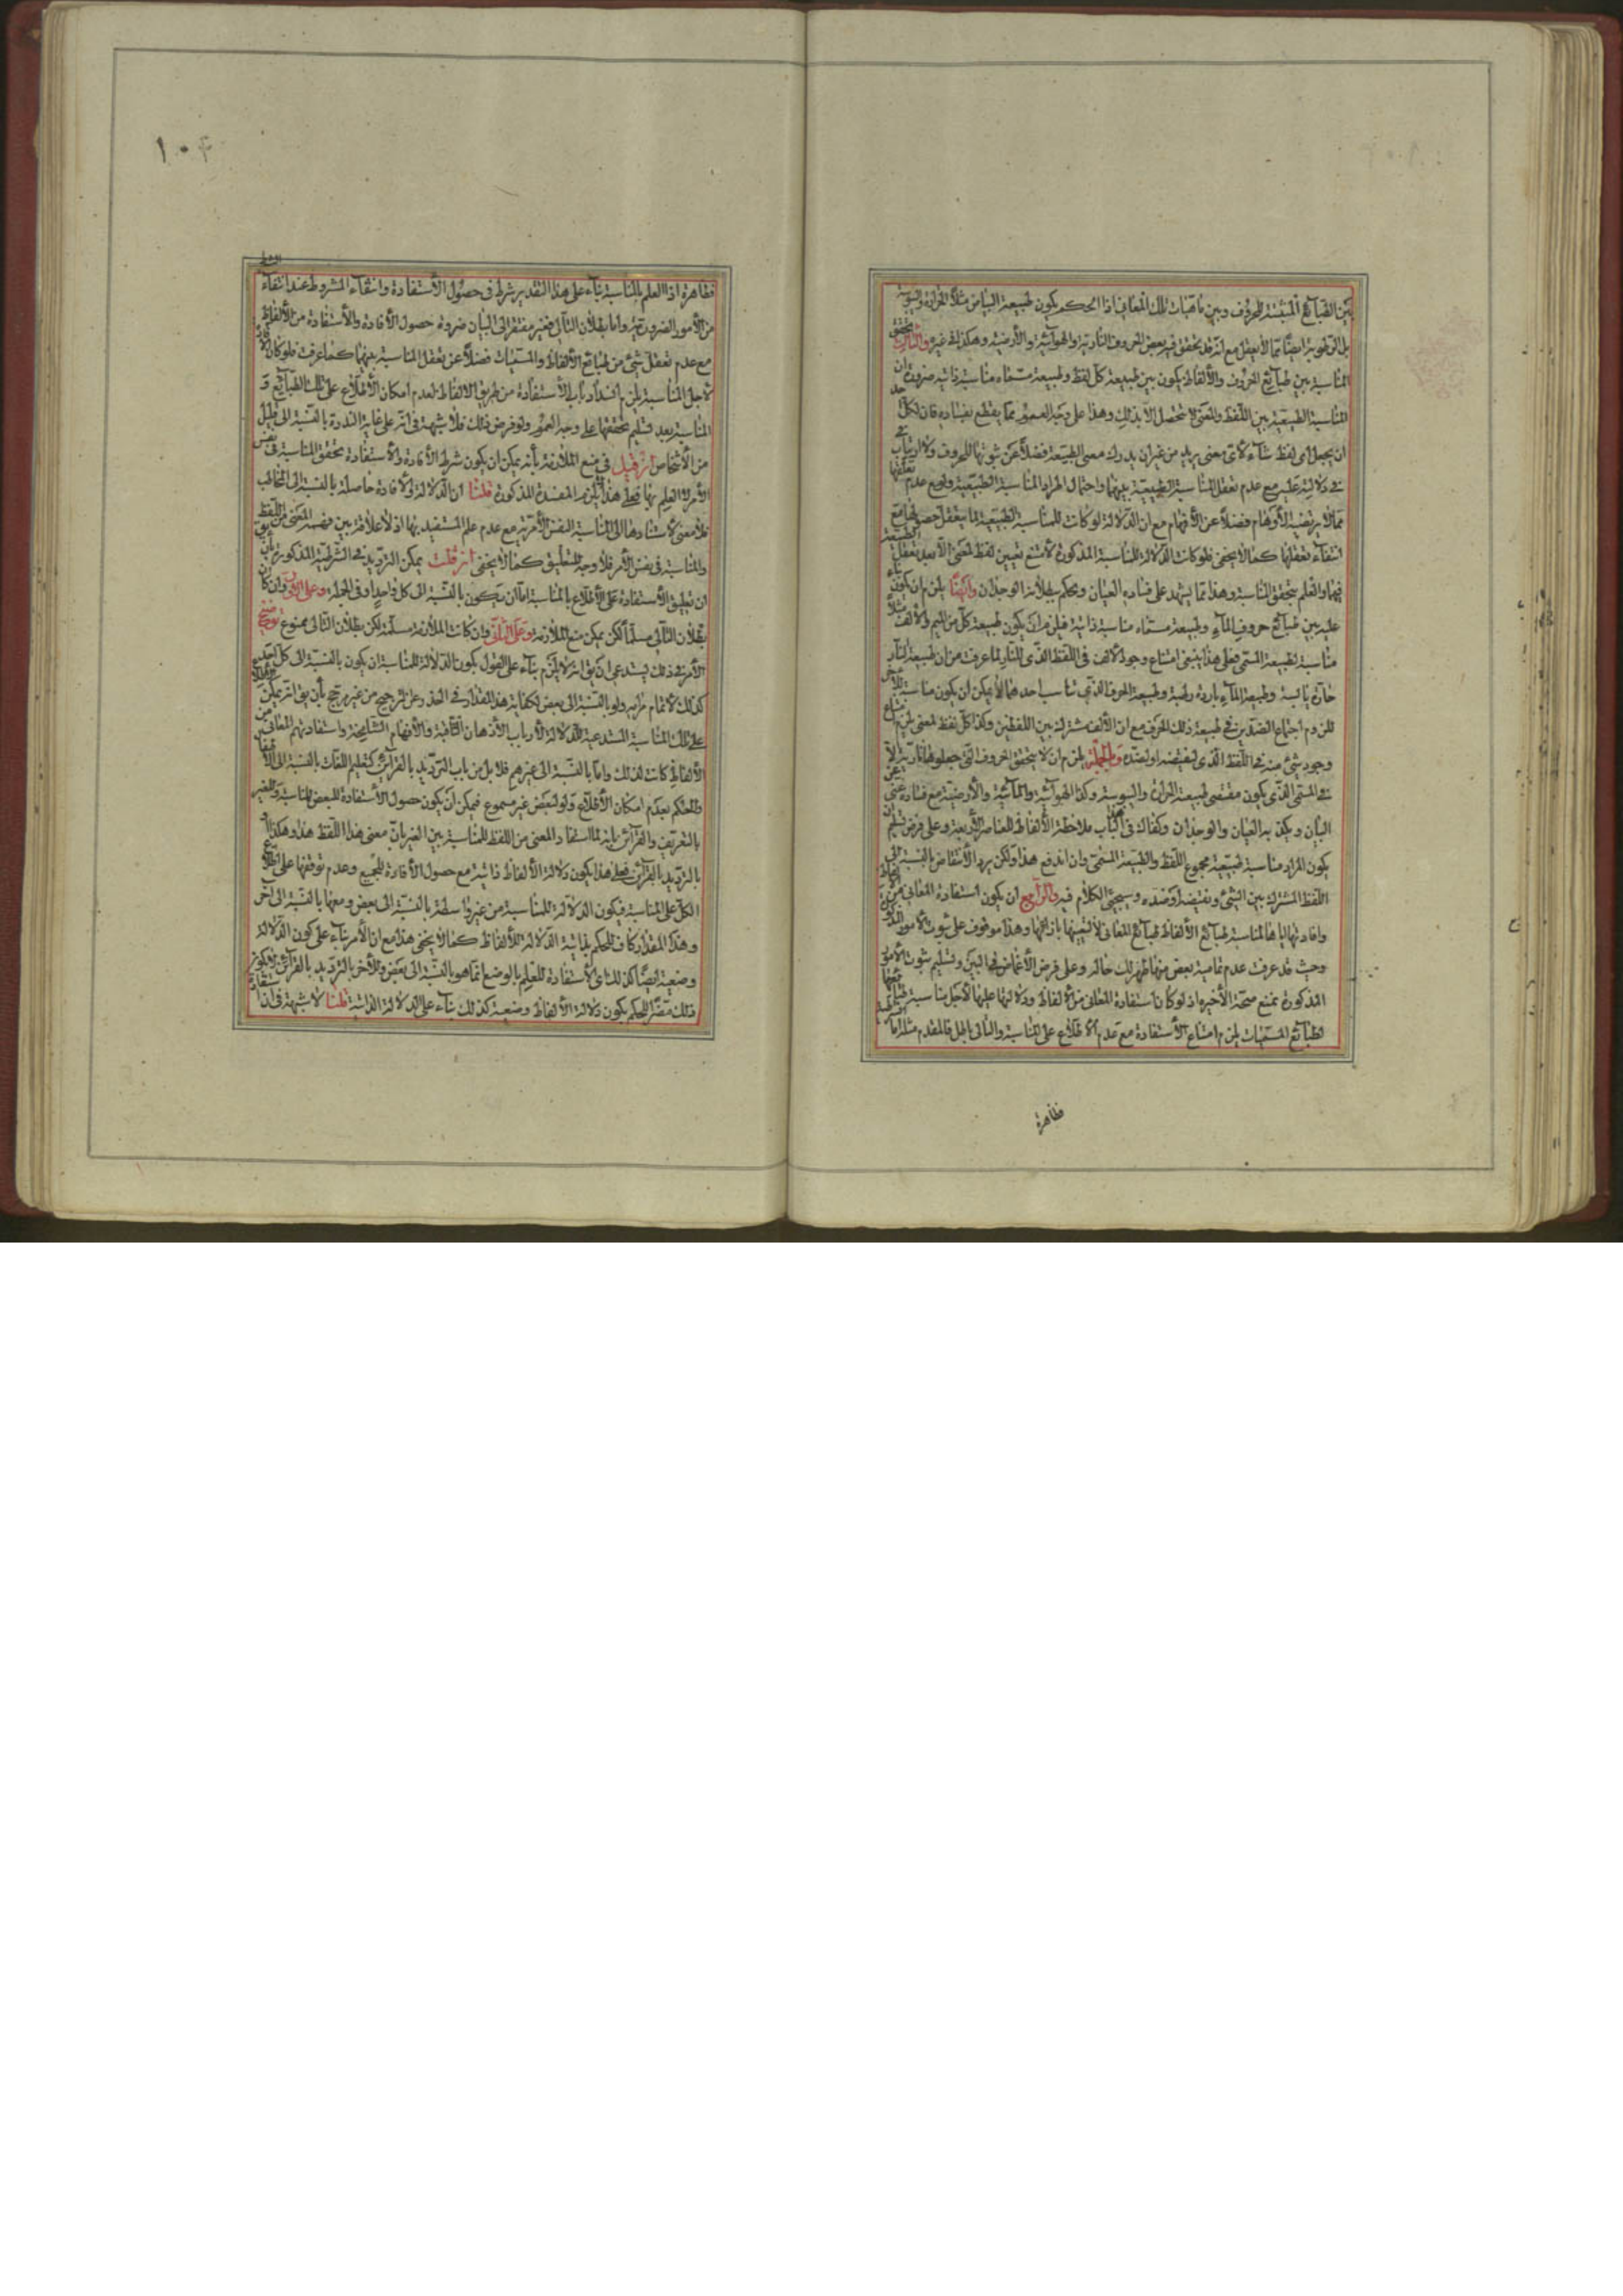 بين الطبايع المثبتة للحروف وبين ماهيات تلك المعاني اذا الحكم بكون طبيعة البياض مثلا الحرارة واليبوسة
بل الرطوبة ايضا مما لا يعقل مع انه قد تحقق فيه بعض الحروف النارية والهوآئية والأرضية وهكذا في غيره والثالث تحقق
المناسبة بين طبآيع الحروف والألفاظ يكون بين طبيعة كل لفظ وطبيعة مسماه مناسبة ذاتية ضرورة ان
المناسبة الطبيعية بين اللفظ والمعنى لا تحصل الا بذلك وهذا على وجه العموم مما يقطع بفساده فان لكل احد
ان يجعل اى لفظ شآء لأى معنى يريد من غير ان يدرك معنى الطبيعة فضلا عن ثبوتها للحروف ولا ارتياب
في دلالته عليه مع عدم تعقل المناسبة الطبيعية بينهما واحتمال المراد المناسبة الطبيعية ولو مع عدم تعقلها
مما لا يرتضيه الأوهام فضلا عن الأفهام مع ان الدلالة لو كانت للمناسبة الطبيعية لما يعقل حصولها مع
انتفآء تعقلها كما لا يخفى فلو كانت الدلالة للمناسبة المذكورة لامتنع تعيين لفظ لمعنى الا بعد تعقل الطبيعة
فيهما والعلم بتحقق المناسبة وهذا مما يشهد على فساده العيان ويحكم ببطلانه الوجدان وايضا يلزم ان يكون بنآء
عليه بين طبآيع حروف المآء وطبيعة مسماه مناسبة ذاتية فيلزم ان يكون طبيعة كل من الميم والألف مثلا
مناسبة لطبيعة المسمى فعلى هذا ينبغي امتناع وجود الألف في اللفظ الذى للنار لما عرفت من ان طبيعة النار
حآرة يابسة وطبيعة المآء باردة رطبة وطبيعة الحرف الذى تناسب احدهما لا يمكن ان يكون مناسبة للأخرى
للزوم اجتماع الضدين في طبيعة ذلك الحرف مع ان الألف مشترك بين اللفظين وكذا كل لفظ لمعنى يلزم امتناع
وجود شئ منه في اللفظ الذى لنقيضه او لضده وبالجملة يلزم ان لا يتحقق الحروف التى جعلوها نارية الا
في المسمى الذى يكون مقتضى طبيعة الحرارة واليبوسة وكذا الهوآئية والمآئية والأرضية مع فساده غنى عن
البيان ويكذبه العيان والوجدان وكفاك في الباب ملاحظة الألفاظ للعناصر الأربعة وعلى فرض تسليم ان
يكون المراد مناسبة طبيعة مجموع اللفظ والطبيعة المسمى وان اندفع هذا ولكن يرد الأنتقاض بالنسبة الى
اللفظ المشترك بين الشئ ونقيضه او ضده وسيجئ الكلام فيه والرابع ان يكون استفادة المعانى من الألفاظ
وافادتها اياها لمناسبة طبآيع الألفاظ طبآيع المعانى لا لتعيينها بازائها وهذا موقوف على ثبوت الأمور المذكورة
وحيث قد عرفت عدم تمامية بعض منها ظهر لك حاله وعلى فرض الأغماض في البين وتسليم ثبوت الأمور
المذكورة نمنع صحة الأخير اذ لو كان استفادة المعانى من الألفاظ ودلالتها عليها لأجل مناسبة طبآيعها
لطبآيع المسميات يلزم امتناع الأستفادة مع عدم الأطلاع على المناسبة والتالى باطل فالمقدم مثله اما الشرطية
ظاهرة
١٠٤
فظاهرة اذ العلم بالمناسبة بنآء على هذا التقدير شرط في حصول الأستفادة وانتفآء المشروط عند انتفآء الشرط
من الأمور الضرورية واما بطلان التالى فغير مفتقر الى البيان ضرورة حصول الأفادة والأستفادة من الألفاظ
مع عدم تعقل شئ من طبايع الألفاظ والمسميات فضلا عن تعقل المناسبة بينهما كما عرفت فلو كان الأفادة
لأجل المناسبة يلزم انسداد باب الأستفادة من طريق الألفاظ لعدم امكان الأطلاع على تلك الطبآيع و
المناسبة بعد تسليم تحققها على وجه العموم ولو فرض ذلك فلا شبهة في انه على غاية الندرة بالنسبة الى قليل
من الأشخاص ان قيل في منع الملازمة بأنه يمكن ان يكون شرط الأفادة والأستفادة تحقق المناسبة في نفس
الأمر لا العلم بها فعلى هذا لا يلزم المفسدة المذكورة قلنا ان الدلالة والأفادة حاصلة بالنسبة الى المخاطب
فلا معنى لأستنادها الى المناسبة النفس الأمرية مع عدم علم المستفيد بها اذ لا علاقة بين فهمه المعنى من اللفظ
والمناسبة في نفس الأمر فلا وجه للتعليق كما لا يخفى ان قلت يمكن الترديد في الشرطية المذكورة بأن يق
ان تعليق الأستفادة على الأطلاع بالمناسبة اما ان يكون بالنسبة الى كل واحد او في الجملة وعلى الأول وان كان
بطلان التالى مسلما لكن يمكن منع الملازمة وعلى الثانى وان كانت الملازمة مسلمة لكن بطلان التالى ممنوع توضيح
الأمر في ذلك يستدعى ان يق انه لا يلزم بنآء على القول بكون الدلالة للمناسبة ان يكون بالنسبة الى كل احد
كذلك لأتمام مرامه ولو بالنسبة الى بعض لكفاية هذا المقدار في الحذر عن الترجيح من غير مرجح بأن يق انه يمكن
على تلك المناسبة المستدعية للدلالة لأرباب الأذهان الثاقبة والأفهام الشامخة واستفادتهم المعانى من
الألفاظ كانت لذلك واما بالنسبة الى غيرهم فلا بل من باب الترديد بالقرآئن كتعليم اللغات بالنسبة الى الأطفال
والحكم بعدم امكان الأطلاع ولو لبعض غير مسموع فيمكن ان يكون حصول الأستفادة للبعض للمناسبة وللغير
بالتعريف والقرآئن بأنه لما استفاد المعنى من اللفظ للمناسبة بين الغير بان معنى هذا اللفظ هذا وهكذا او
بالترديد بالقرآئن فعلى هذا يكون دلالة الألفاظ ذاتية مع حصول الأفادة للجميع وعدم توقفها على اطلاع
الكل على المناسبة فيكون الدلالة للمناسبة من غير واسطة بالنسبة الى بعض ومعها بالنسبة الى آخر
وهذا المقدار كاف للحكم بذاتية الدلالة للألفاظ كما لا يخفى هذا مع ان الأمر بنآء على كون الدلالة
وضعية ايضا كذلك اذ الأستفادة للعلم بالوضع انما هو بالنسبة الى بعض وللأخر بالترديد بالقرآئن ولا يكون
ذلك مضرا للحكم بكون دلالة الألفاظ وضعية كذلك بنآء على الدلالة الذاتية قلنا لا شبهة في ان استفادة